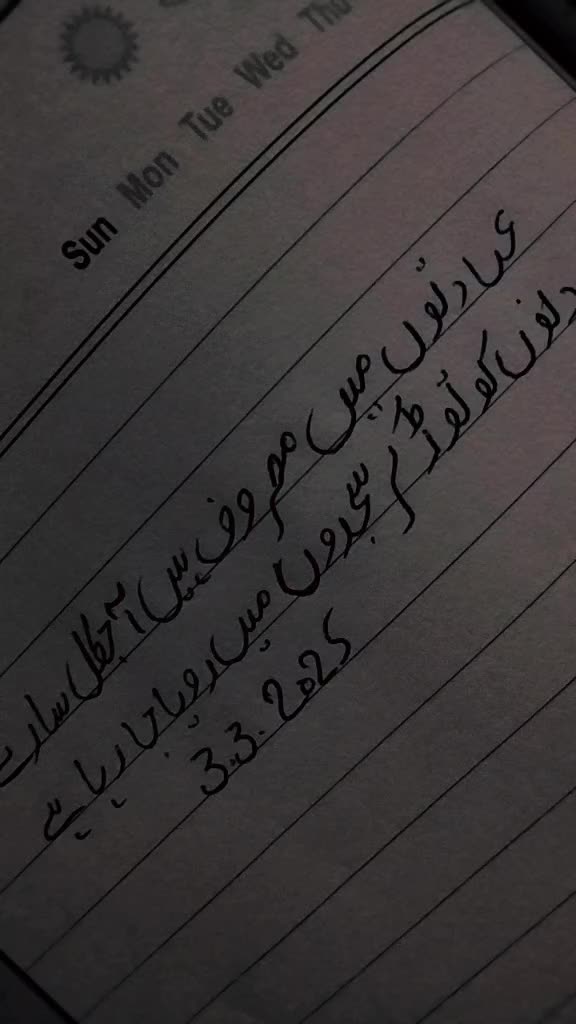 Sun Mon Tue Wed Thu
عبادتوں میں مصروف ہیں آجکل سارے
دلوں کو توڑ کر سجدوں میں رویا جا رہا ہے
3.3.2025